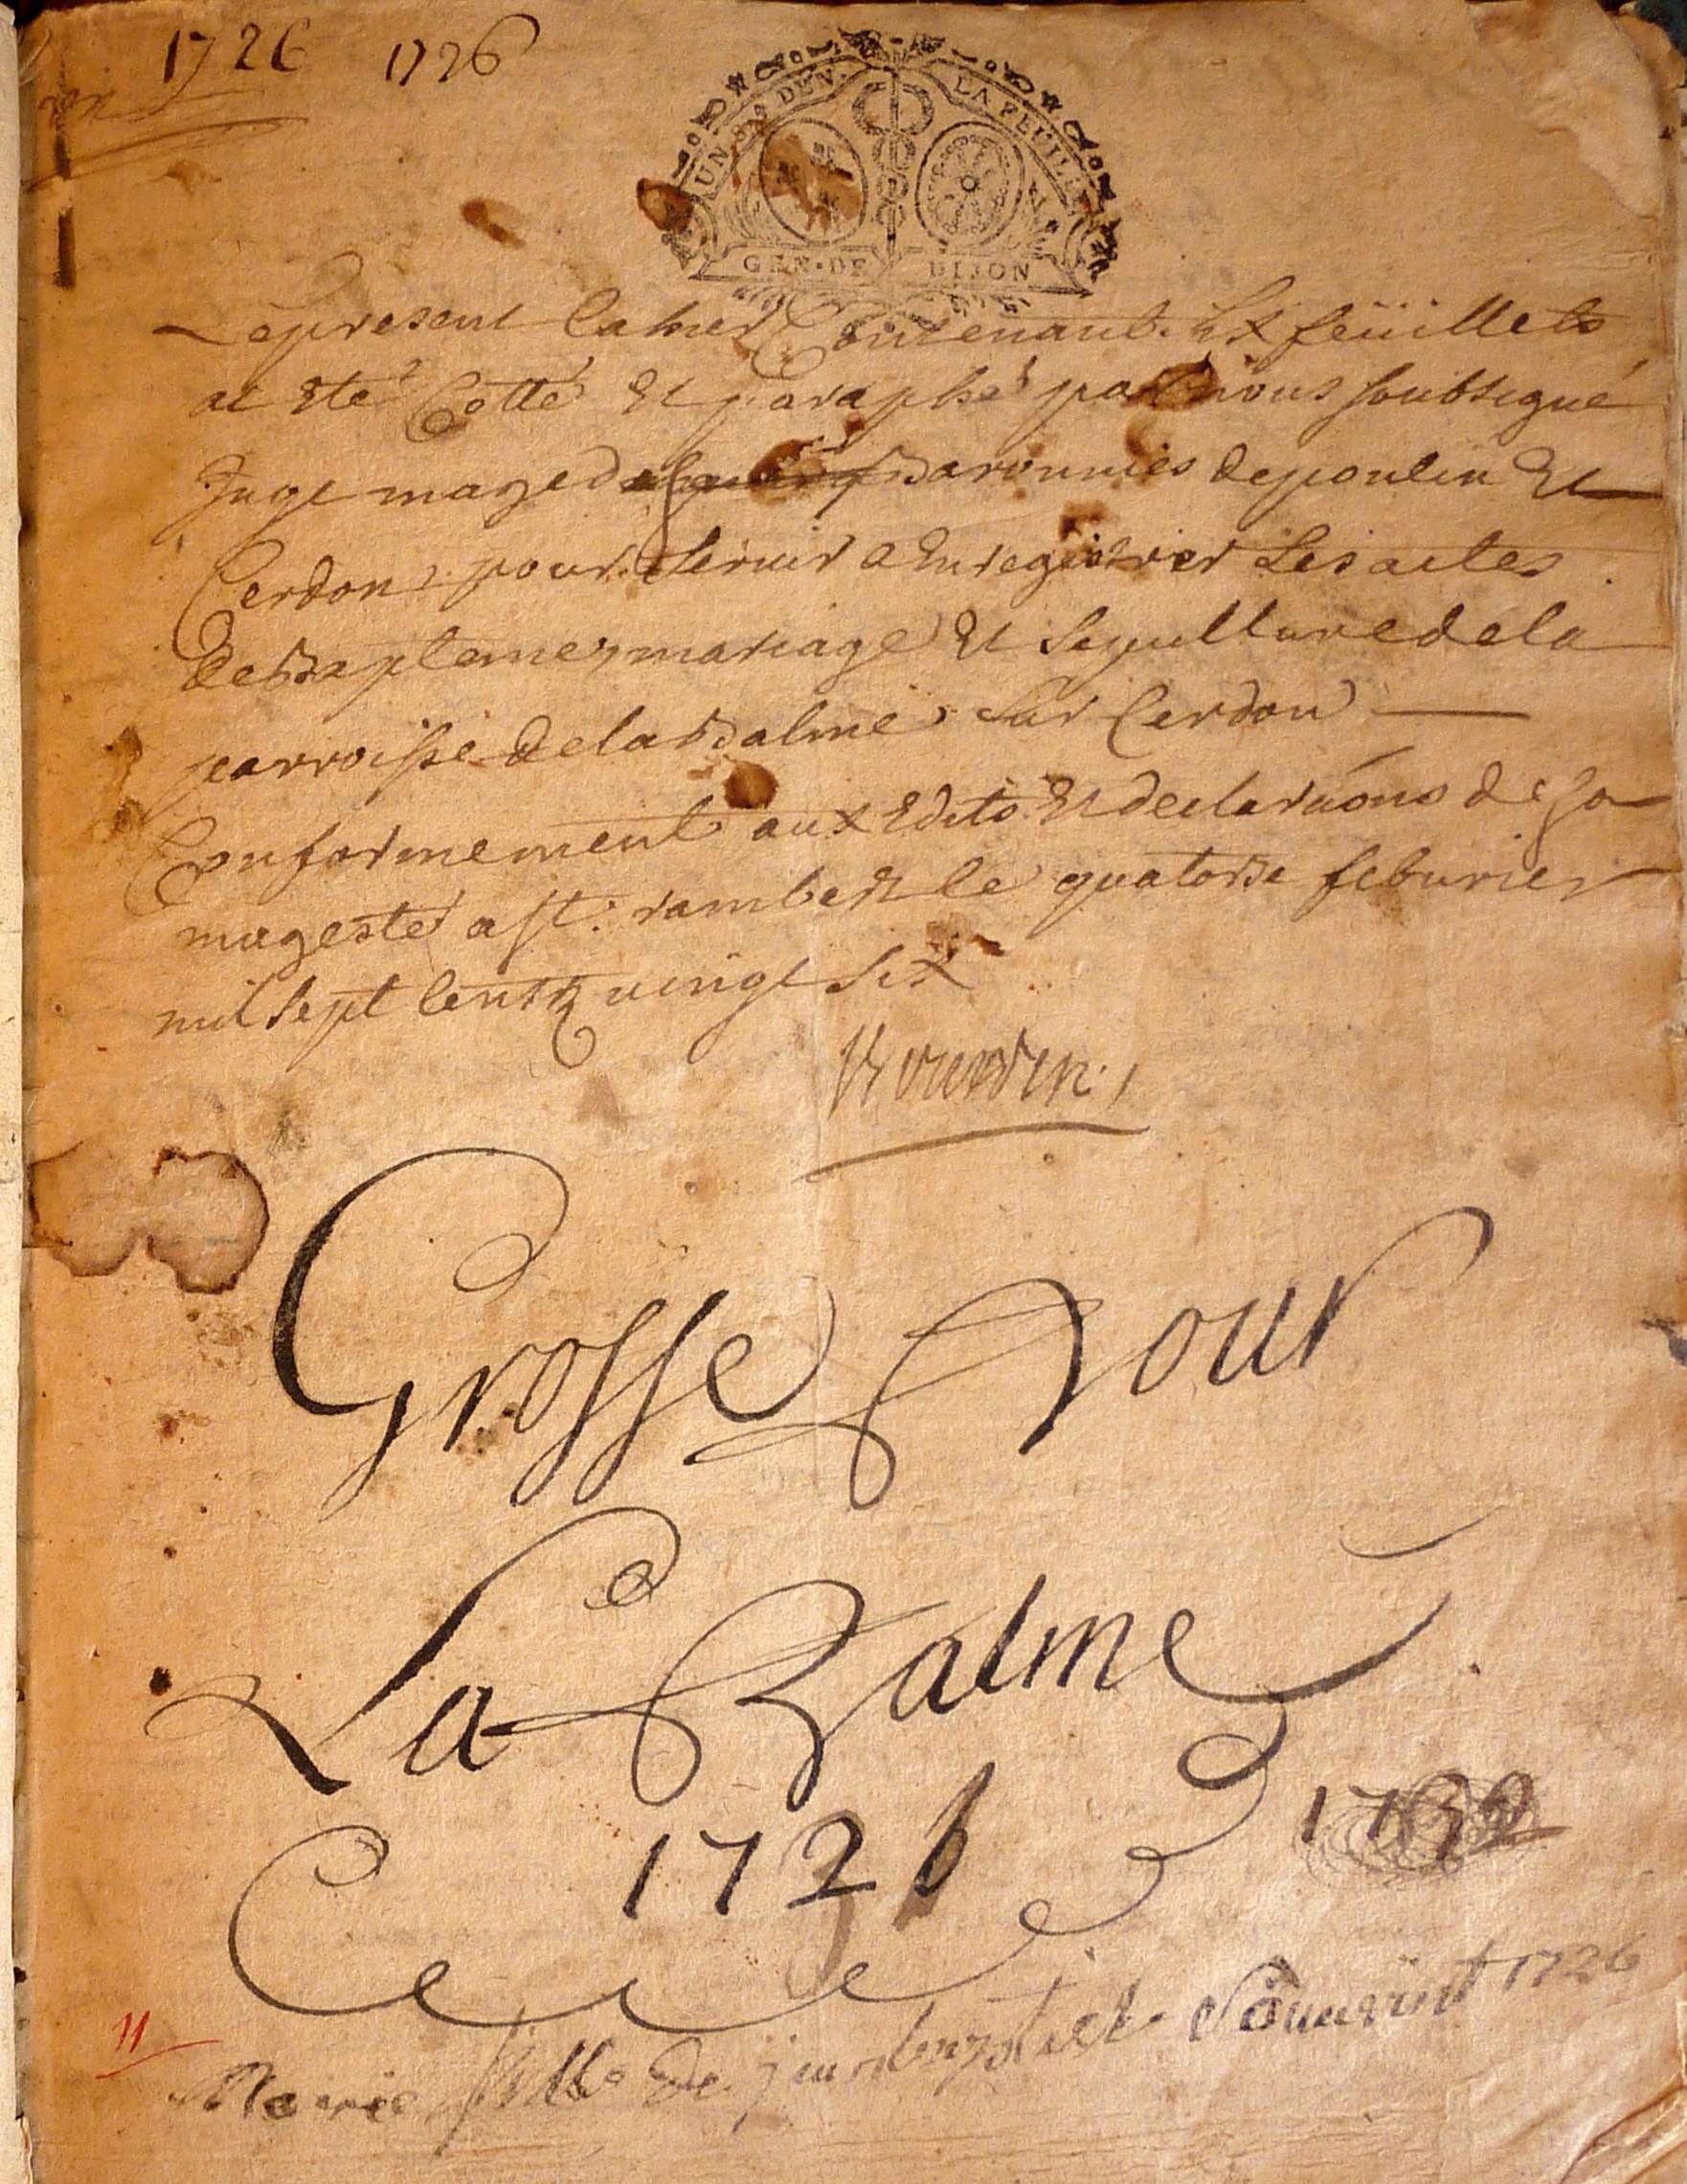 1726 1726
UN S. 8 DEN. LA FEUILLE
GEN. DE DIJON
Le present Cahier Contenant six feüillets
at été Cotté Et paraphé par nous soubsigné
Juge mage des Baronnies de poncin Et
Cerdon pour servir a Enregistrer Les actes
de Baptemes mariage Et sepulture de la
parroisse de la Balme sur Cerdon
Conformement aux Edits Et declarãons de sa
mageste a St. rambert le quatorse feburier
mil sept Centz vingt six
Grosse Pour
La Balme
1726 1730
Marie fille de 1726
11